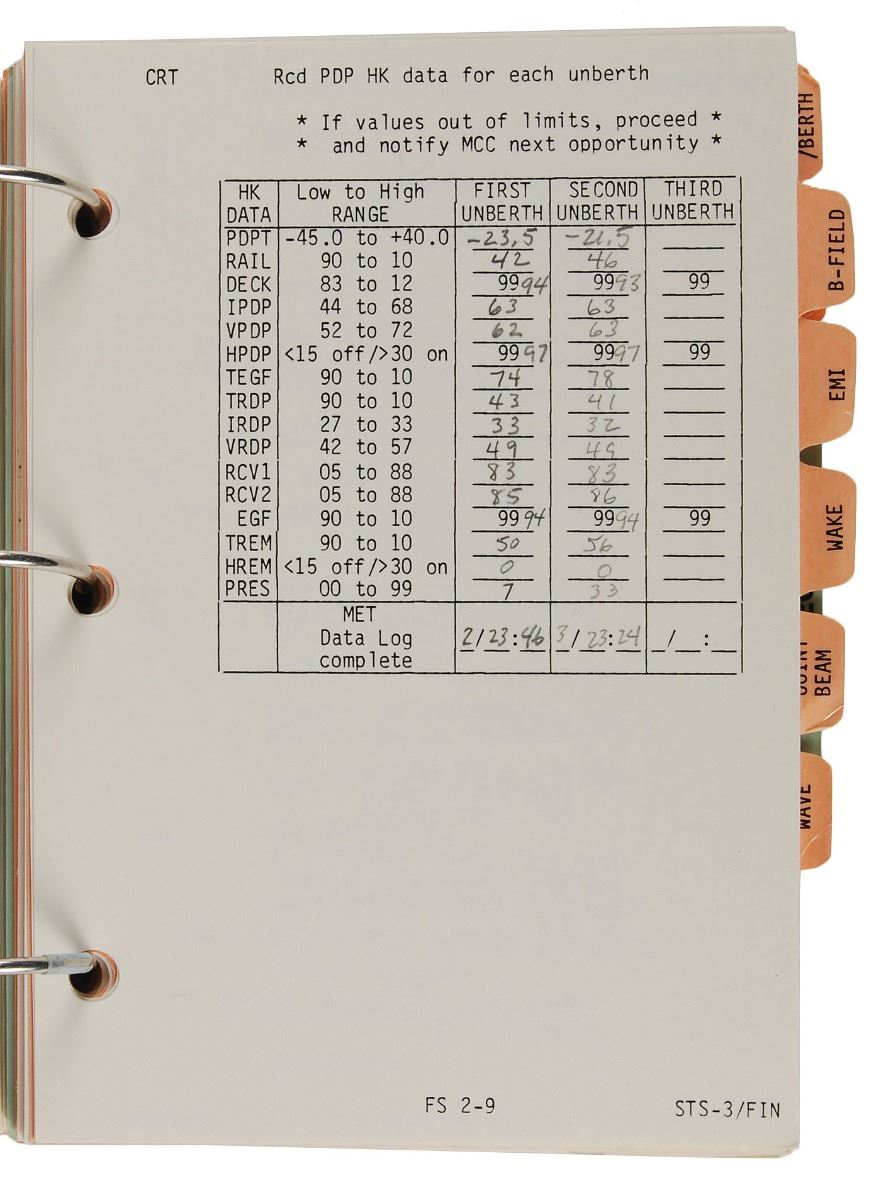 CRT Rcd PDP HK data for each unberth
* If values out of limits, proceed *
* and notify MCC next opportunity *
HK Low to High FIRST SECOND THIRD
DATA RANGE UNBERTH UNBERTH UNBERTH
PDPT -45.0 to +40.0 -23.5 -21.5
RAIL 90 to 10 42 46
DECK 83 to 12 99 94 99 93 99
IPDP 44 to 68 63 63
VPDP 52 to 72 62 63
HPDP <15 off/>30 on 99 97 99 97 99
TEGF 90 to 10 74 78
TRDP 90 to 10 43 41
IRDP 27 to 33 33 32
VRDP 42 to 57 49 49
RCV1 05 to 88 83 83
RCV2 05 to 88 85 86
EGF 90 to 10 99 94 99 94 99
TREM 90 to 10 50 56
HREM <15 off/>30 on 0 0
PRES 00 to 99 7 33
MET
Data Log 2/23:46 3/23:24 _/__:__
complete
FS 2-9
STS-3/FIN
/BERTH
B-FIELD
EMI
WAKE
BEAM
WAVE